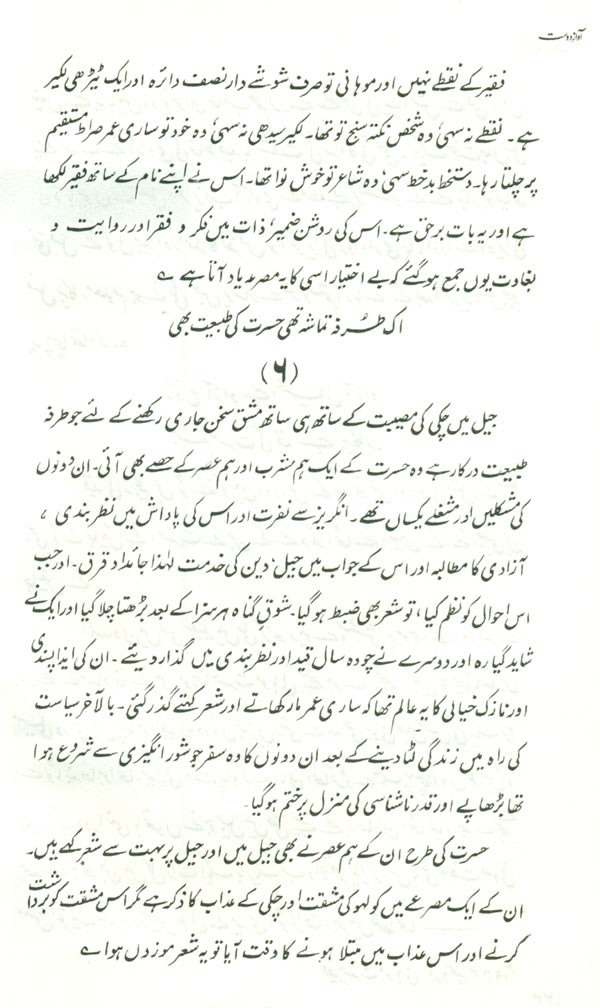 آواز دوست
فقیر کے نقطے نہیں اور موہانی تو صرف شوشے دار نصف دائرہ اور ایک ٹیڑھی لکیر
ہے۔ نقطے نہ سہی، وہ شخص نکتہ سنج تو تھا۔ لکیر سیدھی نہ سہی، وہ خود تو ساری عمر صراط مستقیم
پر چلتا رہا۔ دستخط بدخط سہی، وہ شاعر تو خوش نوا تھا۔ اس نے اپنے نام کے ساتھ فقیر لکھا
ہے اور یہ بات برحق ہے۔ اس کی روشن ضمیر ذات میں فکر و فقر اور روایت و
بغاوت یوں جمع ہو گئے کہ بے اختیار اسی کا یہ مصرعہ یاد آتا ہے ؎
اک طرفہ تماشہ تھی حسرت کی طبیعت بھی
(۶)
جیل میں چکی کی مصیبت کے ساتھ ہی ساتھ مشق سخن جاری رکھنے کے لئے جو طرفہ
طبیعت درکار ہے وہ حسرت کے ایک ہم مشرب اور ہم عصر کے حصے بھی آئی۔ ان دونوں
کی مشکلیں اور مشغلے یکساں تھے۔ انگریز سے نفرت اور اس کی پاداش میں نظر بندی،
آزادی کا مطالبہ اور اس کے جواب میں جیل، دین کی خدمت لہٰذا جائداد قرق۔ اور جب
اس احوال کو نظم کیا، تو شعر بھی ضبط ہو گیا۔ شوق گناہ ہر سزا کے بعد بڑھتا چلا گیا اور ایک نے
شاید گیارہ اور دوسرے نے چودہ سال قید اور نظر بندی میں گذار دیئے۔ ان کی ایذا پسندی
اور نازک خیالی کا یہ عالم تھا کہ ساری عمر مار کھاتے اور شعر کہتے گذر گئی۔ بالآخر سیاست
کی راہ میں زندگی لٹا دینے کے بعد ان دونوں کا وہ سفر جو شور انگیزی سے شروع ہوا
تھا بڑھاپے اور قدر ناشناسی کی منزل پر ختم ہو گیا۔
حسرت کی طرح ان کے ہم عصر نے بھی جیل میں اور جیل پر بہت سے شعر کہے ہیں۔
ان کے ایک مصرعے میں کولہو کی مشقت اور چکی کے عذاب کا ذکر ہے مگر اس مشقت کو برداشت
کرنے اور اس عذاب میں مبتلا ہونے کا وقت آیا تو یہ شعر موزوں ہوا ؎